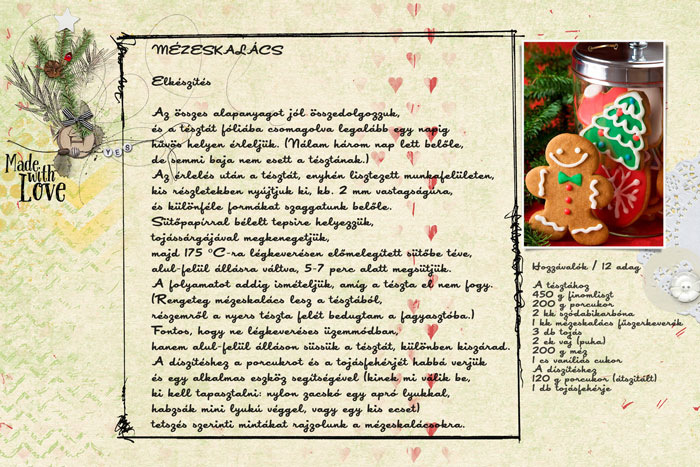 MÉZESKALÁCS
Elkészítés
Az összes alapanyagot jól összedolgozzuk,
és a tésztát fóliába csomagolva legalább egy napig
hűvös helyen érleljük. (Nálam három nap lett belőle,
de semmi baja nem esett a tésztának.)
Az érlelés után a tésztát, enyhén lisztezett munkafelületen,
kis részletekben nyújtjuk ki, kb. 2 mm vastagságúra,
és különféle formákat szaggatunk belőle.
Sütőpapírral bélelt tepsire helyezzük,
tojássárgájával megkenegetjük,
majd 175 °C-ra légkeverésen előmelegített sütőbe téve,
alul-felül állásra váltva, 5-7 perc alatt megsütjük.
A folyamatot addig ismételjük, amíg a tészta el nem fogy.
(Rengeteg mézeskalács lesz a tésztából,
részemről a nyers tészta felét bedugtam a fagyasztóba.)
Fontos, hogy ne légkeveréses üzemmódban,
hanem alul-felül álláson süssük a tésztát, különben kiszárad.
A díszítéshez a porcukrot és a tojásfehérjét habbá verjük
és egy alkalmas eszköz segítségével (kinek mi válik be,
ki kell tapasztalni: nylon zacskó egy apró lyukkal,
habzsák mini lyukú véggel, vagy egy kis ecset)
tetszés szerinti mintákat rajzolunk a mézeskalácsokra.
Made
with
Love
YES
Hozzávalók / 12 adag
A tésztához
450 g finomliszt
200 g porcukor
2 kk szódabikarbóna
1 kk mézeskalács fűszerkeverék
3 db tojás
2 ek vaj (puha)
200 g méz
1 cs vaníliás cukor
A díszítéshez
120 g porcukor (átszitált)
1 db tojásfehérje